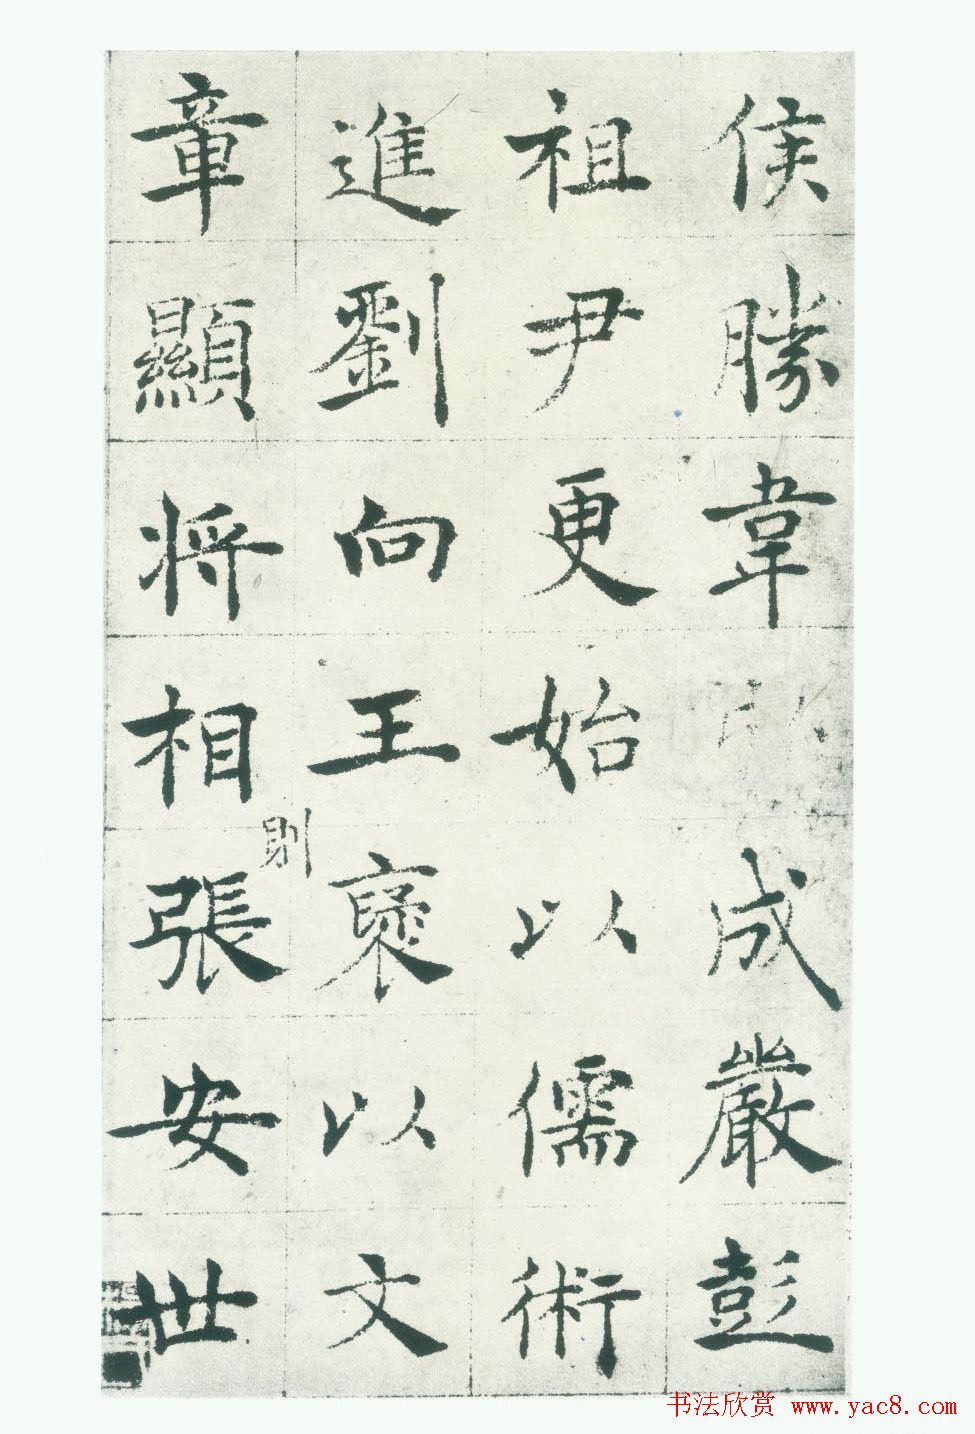 侯勝韋成嚴彭
祖尹更始以儒術
進劉向王褒以文
章顯将相則張安世
书法欣赏 www.yac8.com